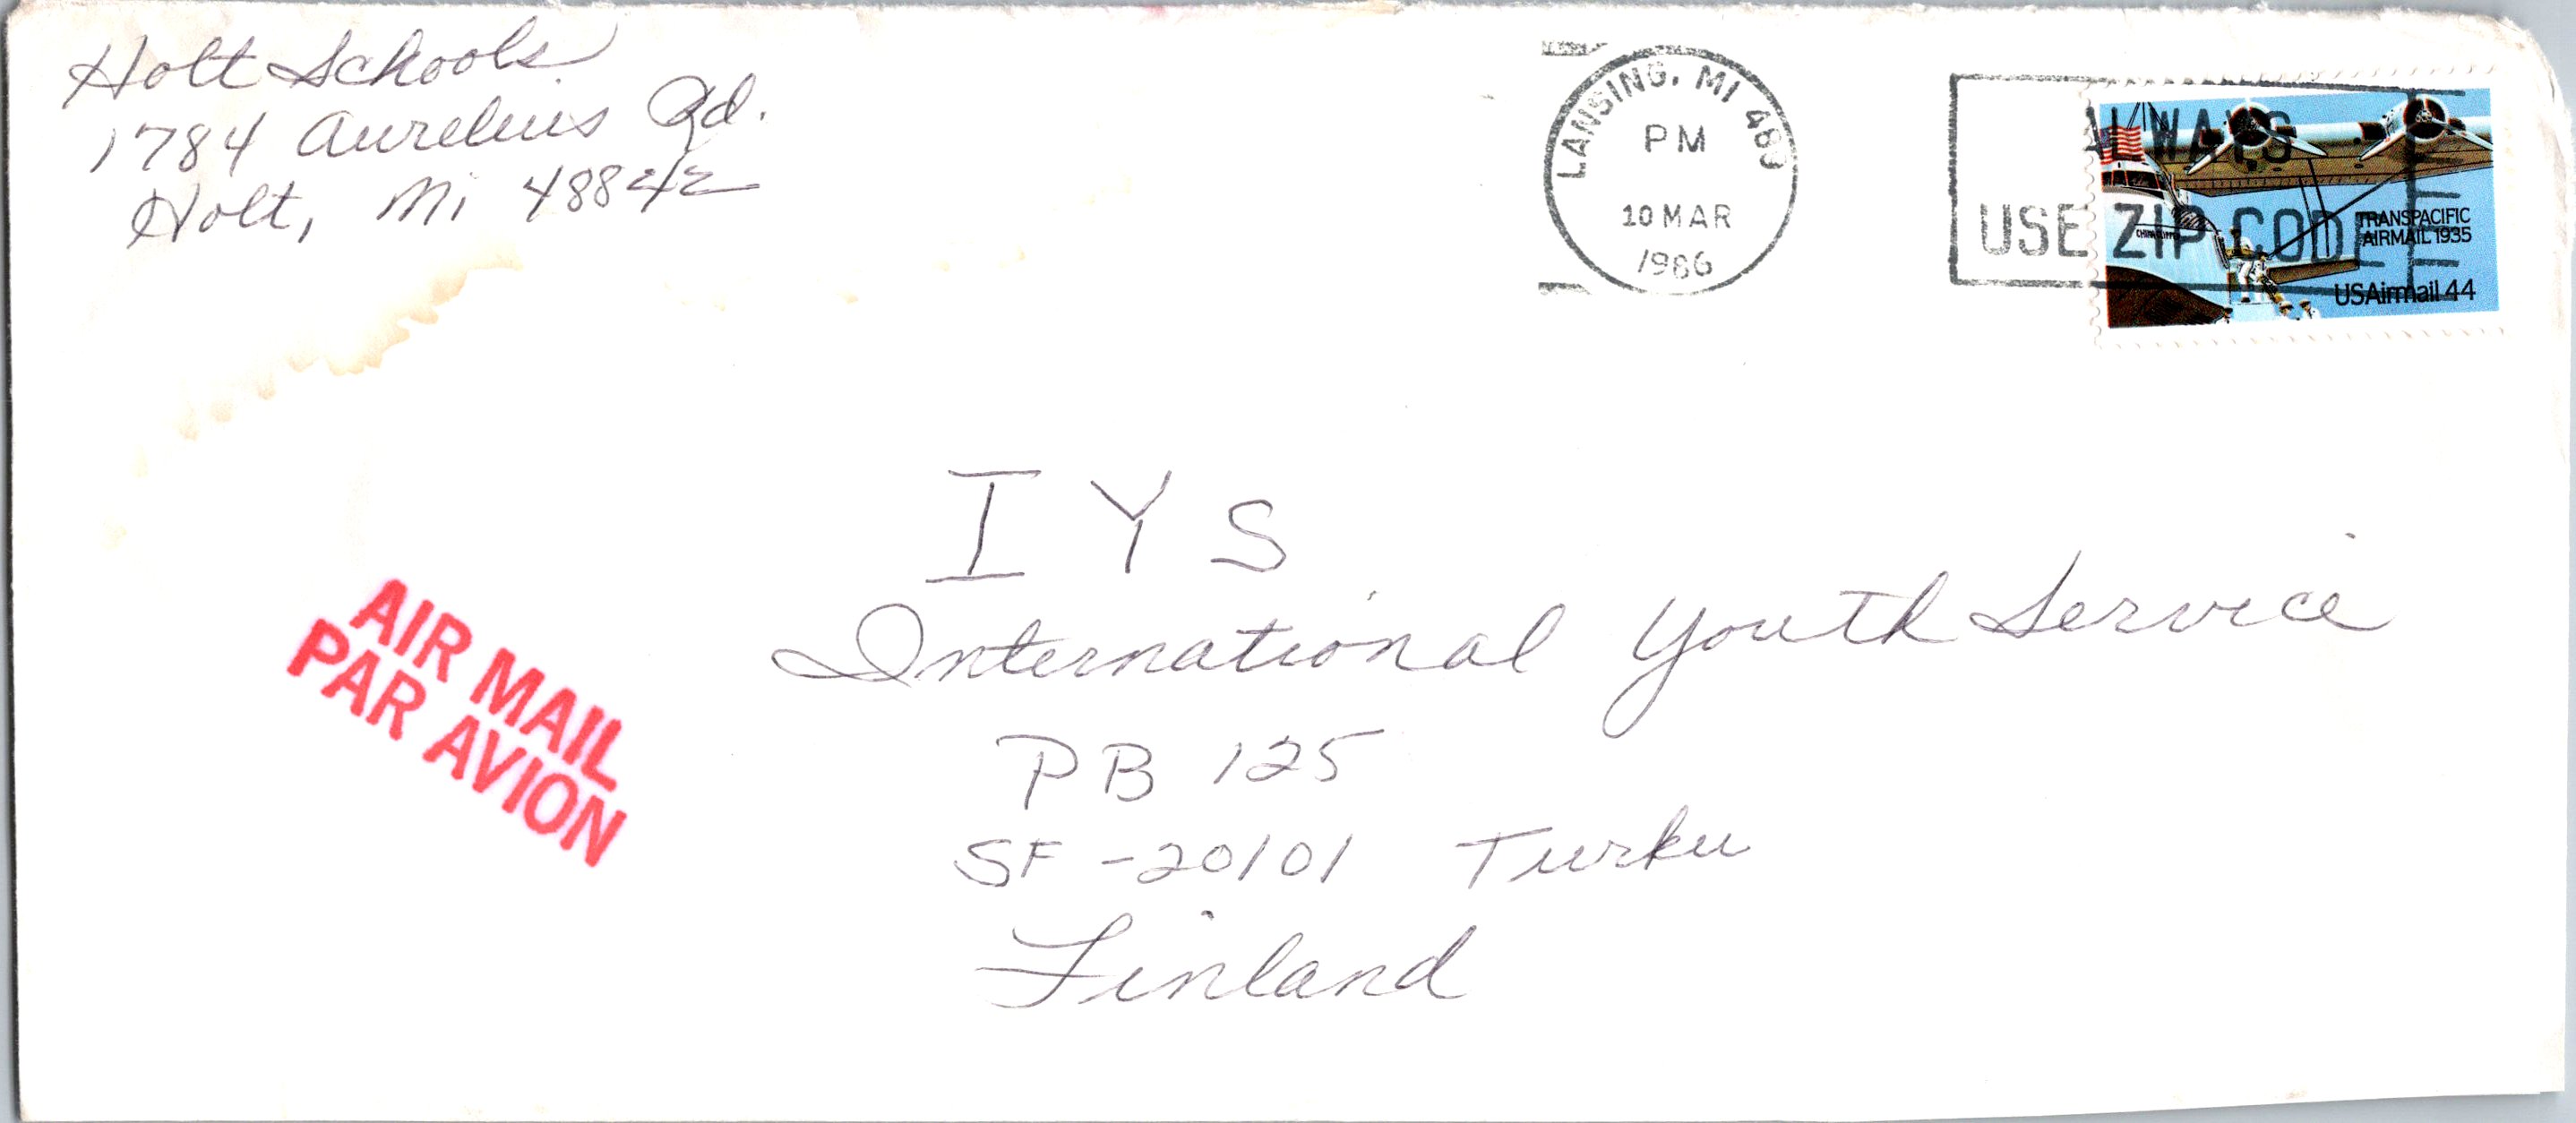 Holt Schools
1784 Aurelius Rd.
Holt, Mi 48842
LANSING, MI 489
PM
10 MAR
1986
ALWAYS
USE ZIP CODE
CHINA CLIPPER
TRANSPACIFIC
AIRMAIL 1935
USAirmail 44
I Y S
International Youth Service
PB 125
SF-20101 Turku
Finland
AIR MAIL
PAR AVION